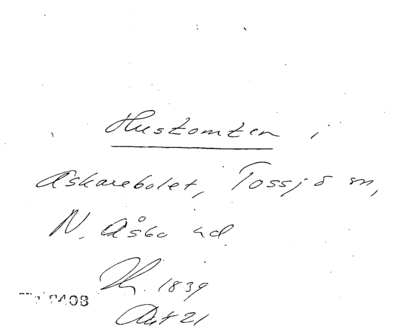 Hustomten i
Askarebolet, Tossjö sn,
N. Åsbo hd.
1839
Art 21